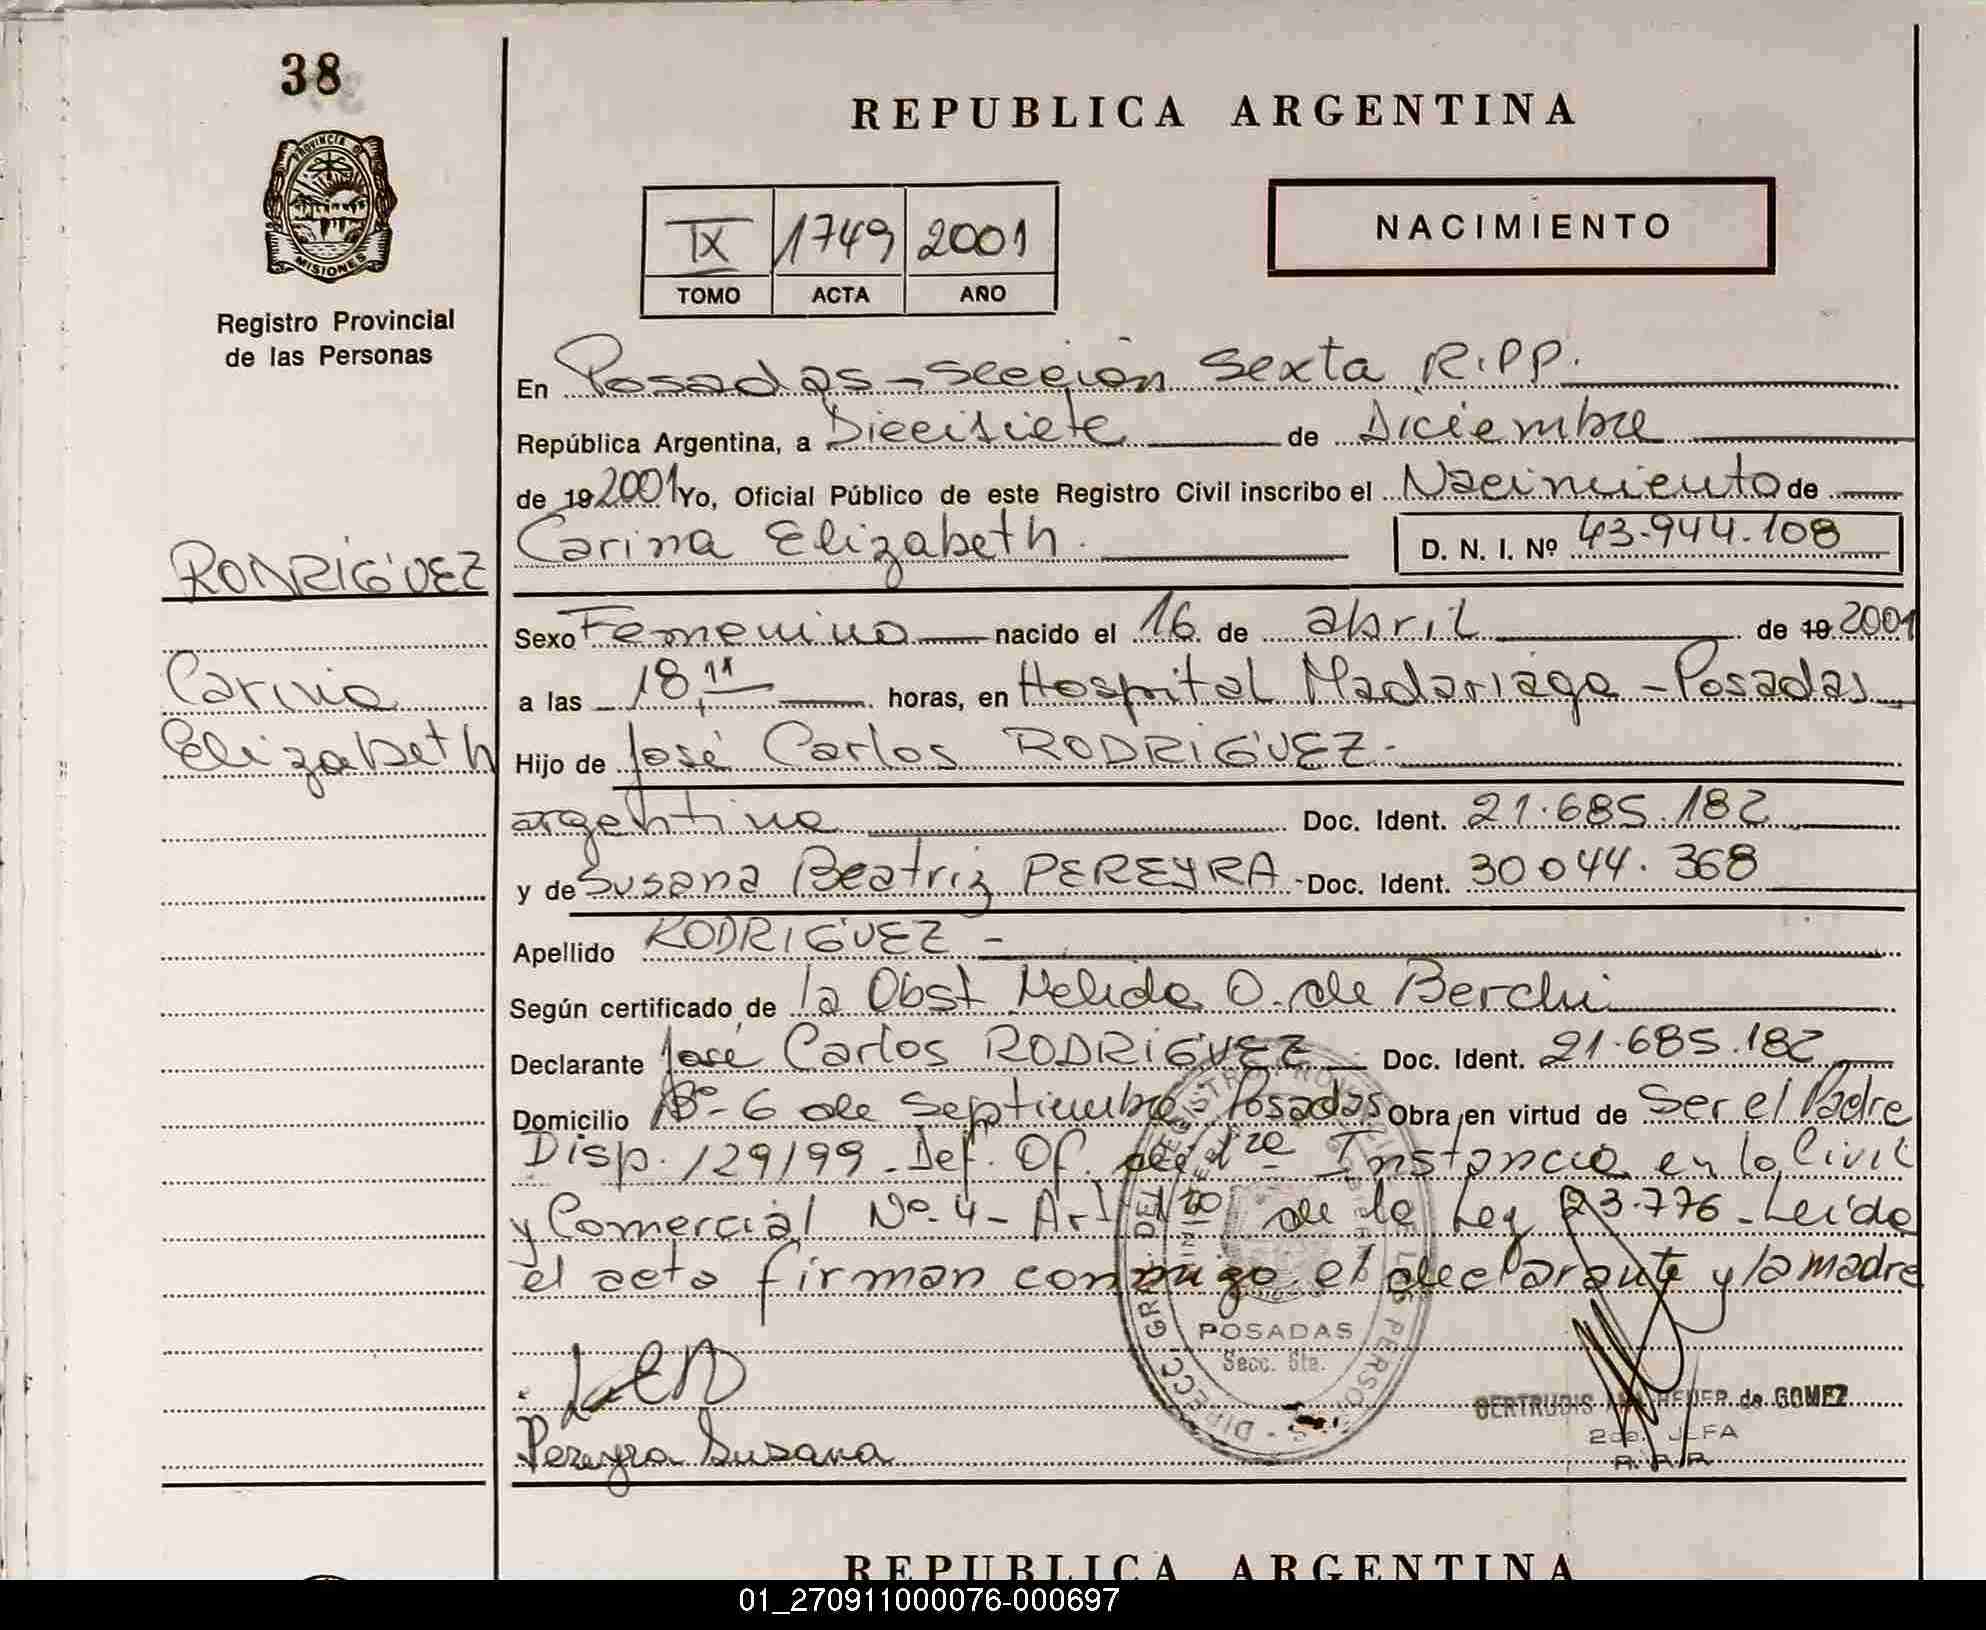 38
REPUBLICA ARGENTINA
PROVINCIA DE
MISIONES
Registro Provincial
de las Personas
IX 1749 2001
TOMO ACTA AÑO
NACIMIENTO
En Posadas - Sección Sexta R.P.P.
República Argentina, a Diecisiete de Diciembre
de 19 2001 Yo, Oficial Público de este Registro Civil inscribo el Nacimiento de
RODRÍGUEZ
Carina Elizabeth. D. N. I. Nº 43.944.108
Sexo Femenino nacido el 16 de abril de 19 2001
Carina
a las 18,11 horas, en Hospital Madariaga - Posadas
Elizabeth
Hijo de José Carlos RODRIGUEZ.-
argentino Doc. Ident. 21.685.182
y de Susana Beatriz PEREYRA - Doc. Ident. 30044.368
Apellido RODRIGUEZ -
Según certificado de la Obst Nelida O. de Berchi
Declarante José Carlos RODRIGUEZ Doc. Ident. 21.685.182
Domicilio Bº- 6 de Septiembre - Posadas Obra en virtud de Ser el Padre
Disp. 129/99 - Def. Of. de 1ra Instancia en lo Civil
y Comercial Nº- 4 - Art 1ro de la Ley 23.776 - Leída
el acta firman conmigo el declarante y la madre
POSADAS
Secc. 6ta.
GERTRUDIS de GOMEZ
2da. JEFA
Pereyra Susana
REPUBLICA ARGENTINA
01_270911000076-000697